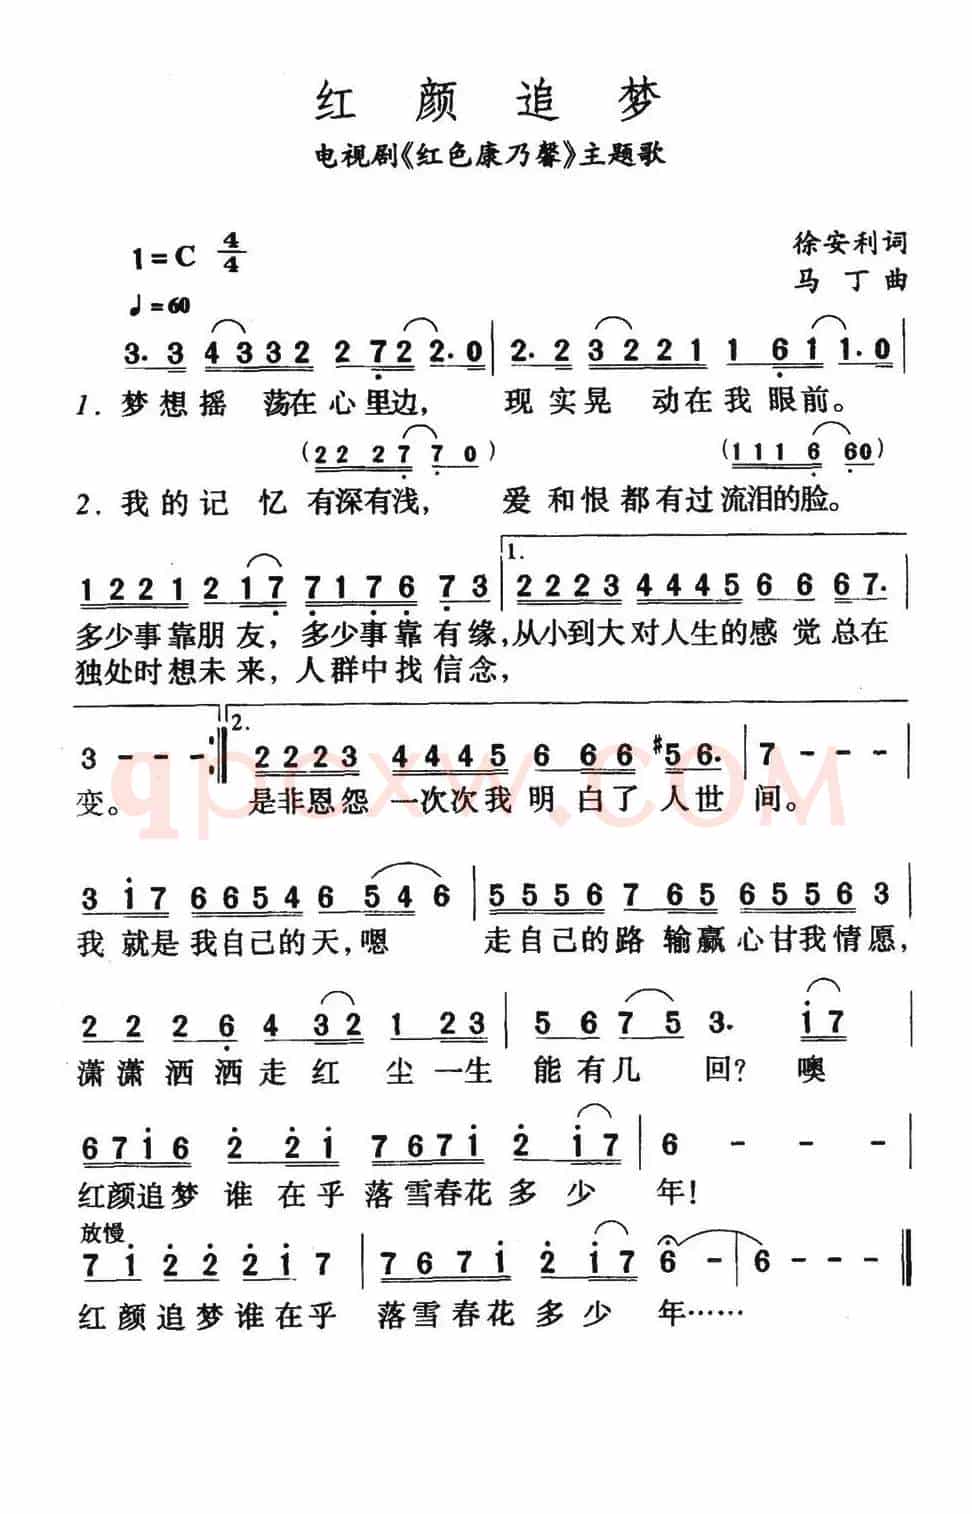 红 颜 追 梦
电视剧《红色康乃馨》主题歌
1=C 4/4
徐安利词
♩=60
马 丁 曲
3. 3 4 3 3 2 2 7 2 2. 0 | 2. 2 3 2 2 1 1 6 1 1. 0 |
1. 梦 想 摇 荡在 心 里边， 现 实晃 动在我 眼前。
(2 2 2 7 7 0) (1 1 1 6 6 0)
2. 我 的 记 忆 有深有浅， 爱 和恨都有过流泪的脸。
1 2 2 1 2 1 7 7 1 7 6 7 3 | 1. 2 2 2 3 4 4 4 5 6 6 6 7. |
多少事靠朋 友，多少事靠 有缘，从小到大对人生的感 觉 总在
独处时想未 来，人群中找 信念，
3 - - - :| 2. 2 2 2 3 4 4 4 5 6 6 6 #5 6. | 7 - - - |
变。 是非恩怨 一次次我 明 白了 人世 间。
3 i 7 6 6 5 4 6 5 4 6 | 5 5 5 6 7 6 5 6 5 5 6 3 |
我 就是 我自己的天，嗯 走自己的路 输赢 心甘我情愿，
2 2 2 6 4 3 2 1 2 3 | 5 6 7 5 3. i 7 |
潇 潇 洒 洒 走 红 尘 一生 能 有 几 回？ 噢
6 7 i 6 2 2 i 7 6 7 i 2 i 7 | 6 - - - |
红颜追梦 谁 在 乎 落雪春花 多 少 年！
放慢
7 i 2 2 2 i 7 | 7 6 7 i 2 i 7 6 - | 6 - - - ‖
红颜 追 梦 谁在 乎 落雪 春花 多 少 年……
qpcxw.com